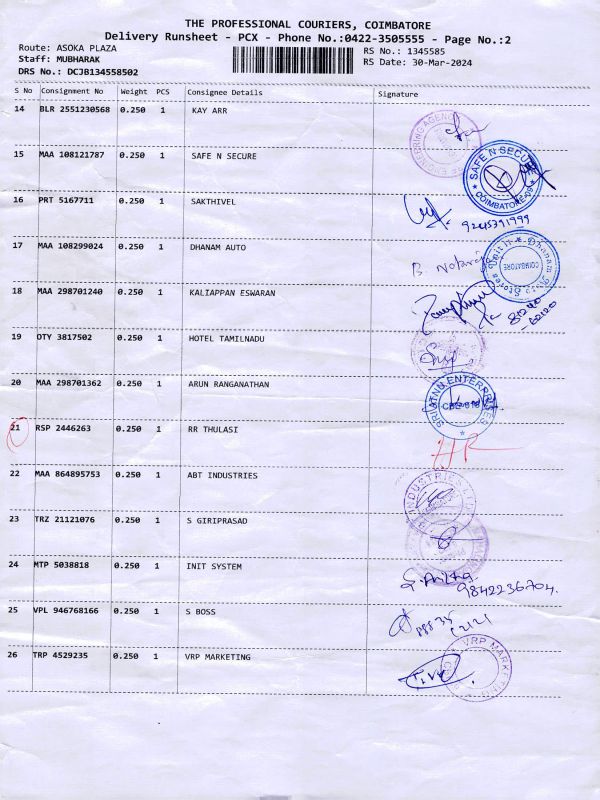 THE PROFESSIONAL COURIERS, COIMBATORE
Delivery Runsheet - PCX - Phone No.:0422-3505555 - Page No.:2
Route: ASOKA PLAZA
RS No.: 1345585
Staff: MUBHARAK
RS Date: 30-Mar-2024
DRS No.: DCJB134558502
S No Consignment No Weight PCS Consignee Details Signature
14 BLR 2551230568 0.250 1 KAY ARR
15 MAA 108121787 0.250 1 SAFE N SECURE
SAFE N SECURE
COIMBATORE
16 PRT 5167711 0.250 1 SAKTHIVEL
9245391999
17 MAA 108299024 0.250 1 DHANAM AUTO
COIMBATORE
18 MAA 298701240 0.250 1 KALIAPPAN ESWARAN
19 OTY 3817502 0.250 1 HOTEL TAMILNADU
20 MAA 298701362 0.250 1 ARUN RANGANATHAN
ENTERPRISES
21 RSP 2446263 0.250 1 RR THULASI
22 MAA 864895753 0.250 1 ABT INDUSTRIES
INDUSTRIES
23 TRZ 21121076 0.250 1 S GIRIPRASAD
24 MTP 5038818 0.250 1 INIT SYSTEM
9842236704.
25 VPL 946768166 0.250 1 S BOSS
26 TRP 4529235 0.250 1 VRP MARKETING
VRP MARKETING